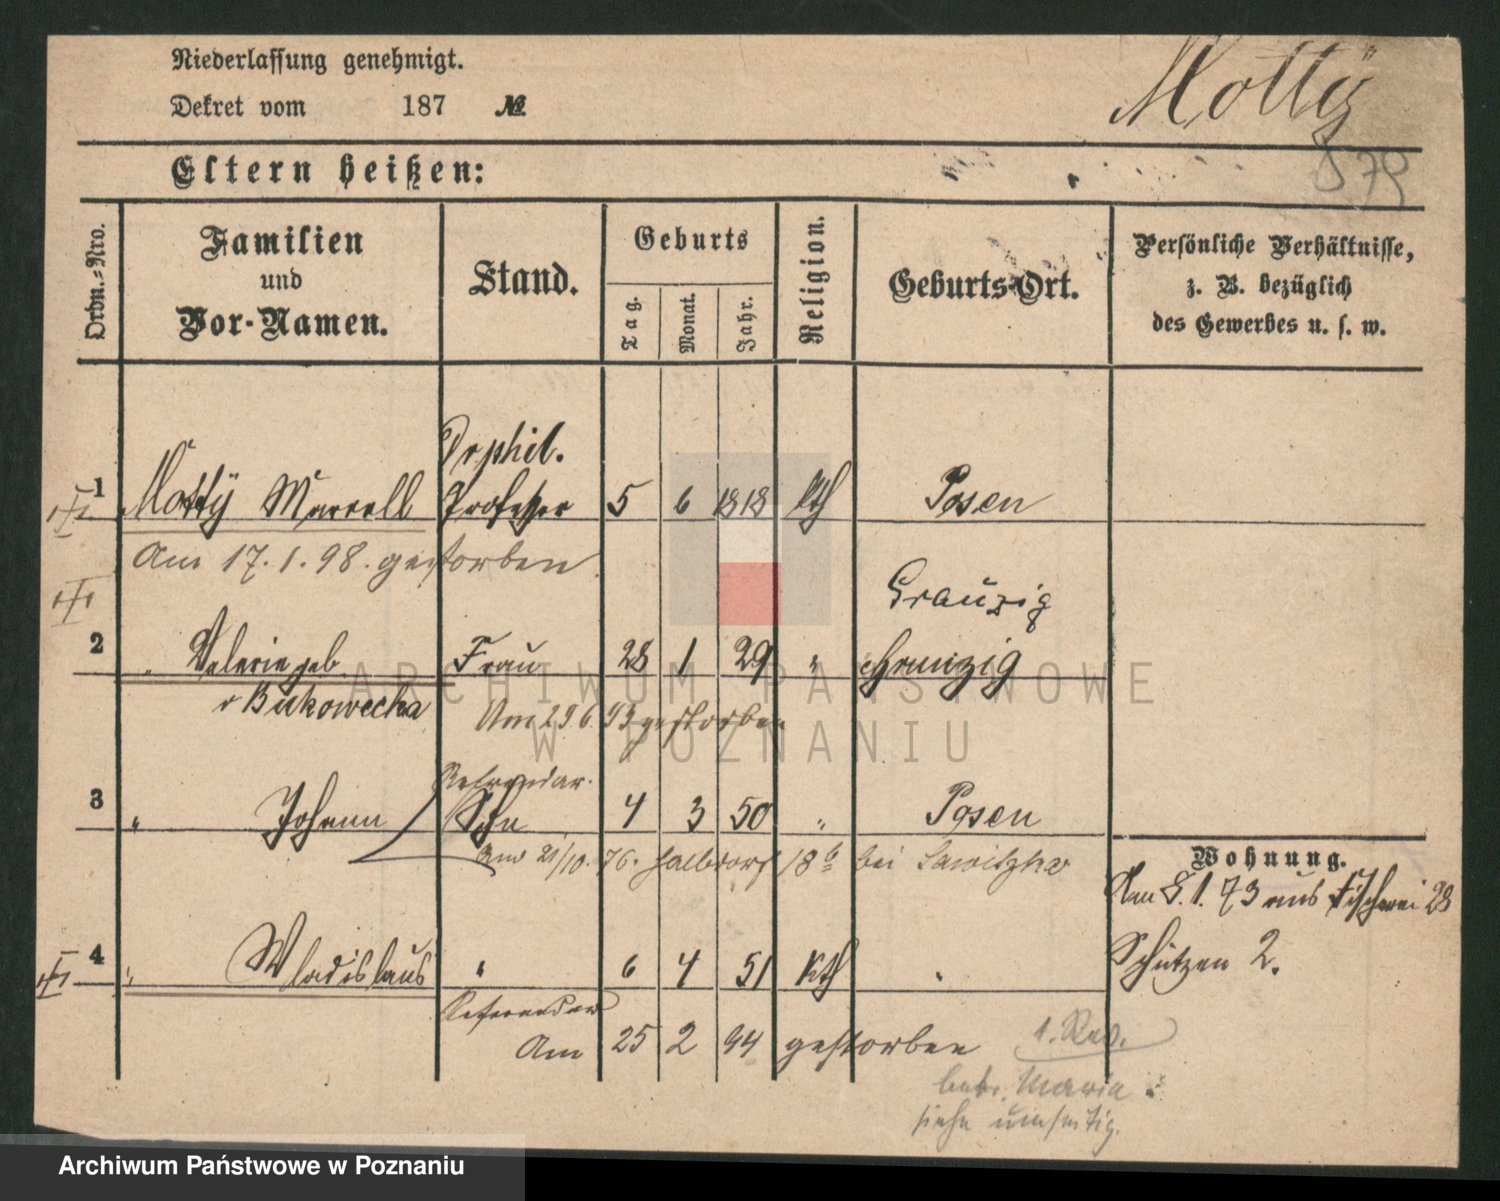 Niederlassung genehmigt.
Dekret vom 187 №
Motty
579
Eltern heißen:
Ordn.=Nro.
Familien und Vor-Namen.
Stand.
Geburts
Tag.
Monat.
Jahr.
Religion.
Geburts-Ort.
Persönliche Verhältnisse,
z. B. bezüglich
des Gewerbes u. s. w.
Dr phil.
1 Motty Marcell Professor 5 6 1818 kth Posen
Am 17.1.98. gestorben
Grauzig
2 " Valerie geb. Frau 28 1 29 "
v Bukowecka Am 29 6 93 gestorben
Referendar.
3 " Johann Sohn 4 3 50 " Posen
Am 21/10. 76. Halbdorf 18 b bei Sawitzka
Wohnung.
Am 8.1.73 aus Fischerei 28
4 " Wladislaus " 6 4 51 Kth "
Schützen 2.
Referendar
Am 25 2 94 gestorben
1. Rev.
betr. Maria
siehe umseitig.
ARCHIWUM PAŃSTWOWE
W POZNANIU
Archiwum Państwowe w Poznaniu